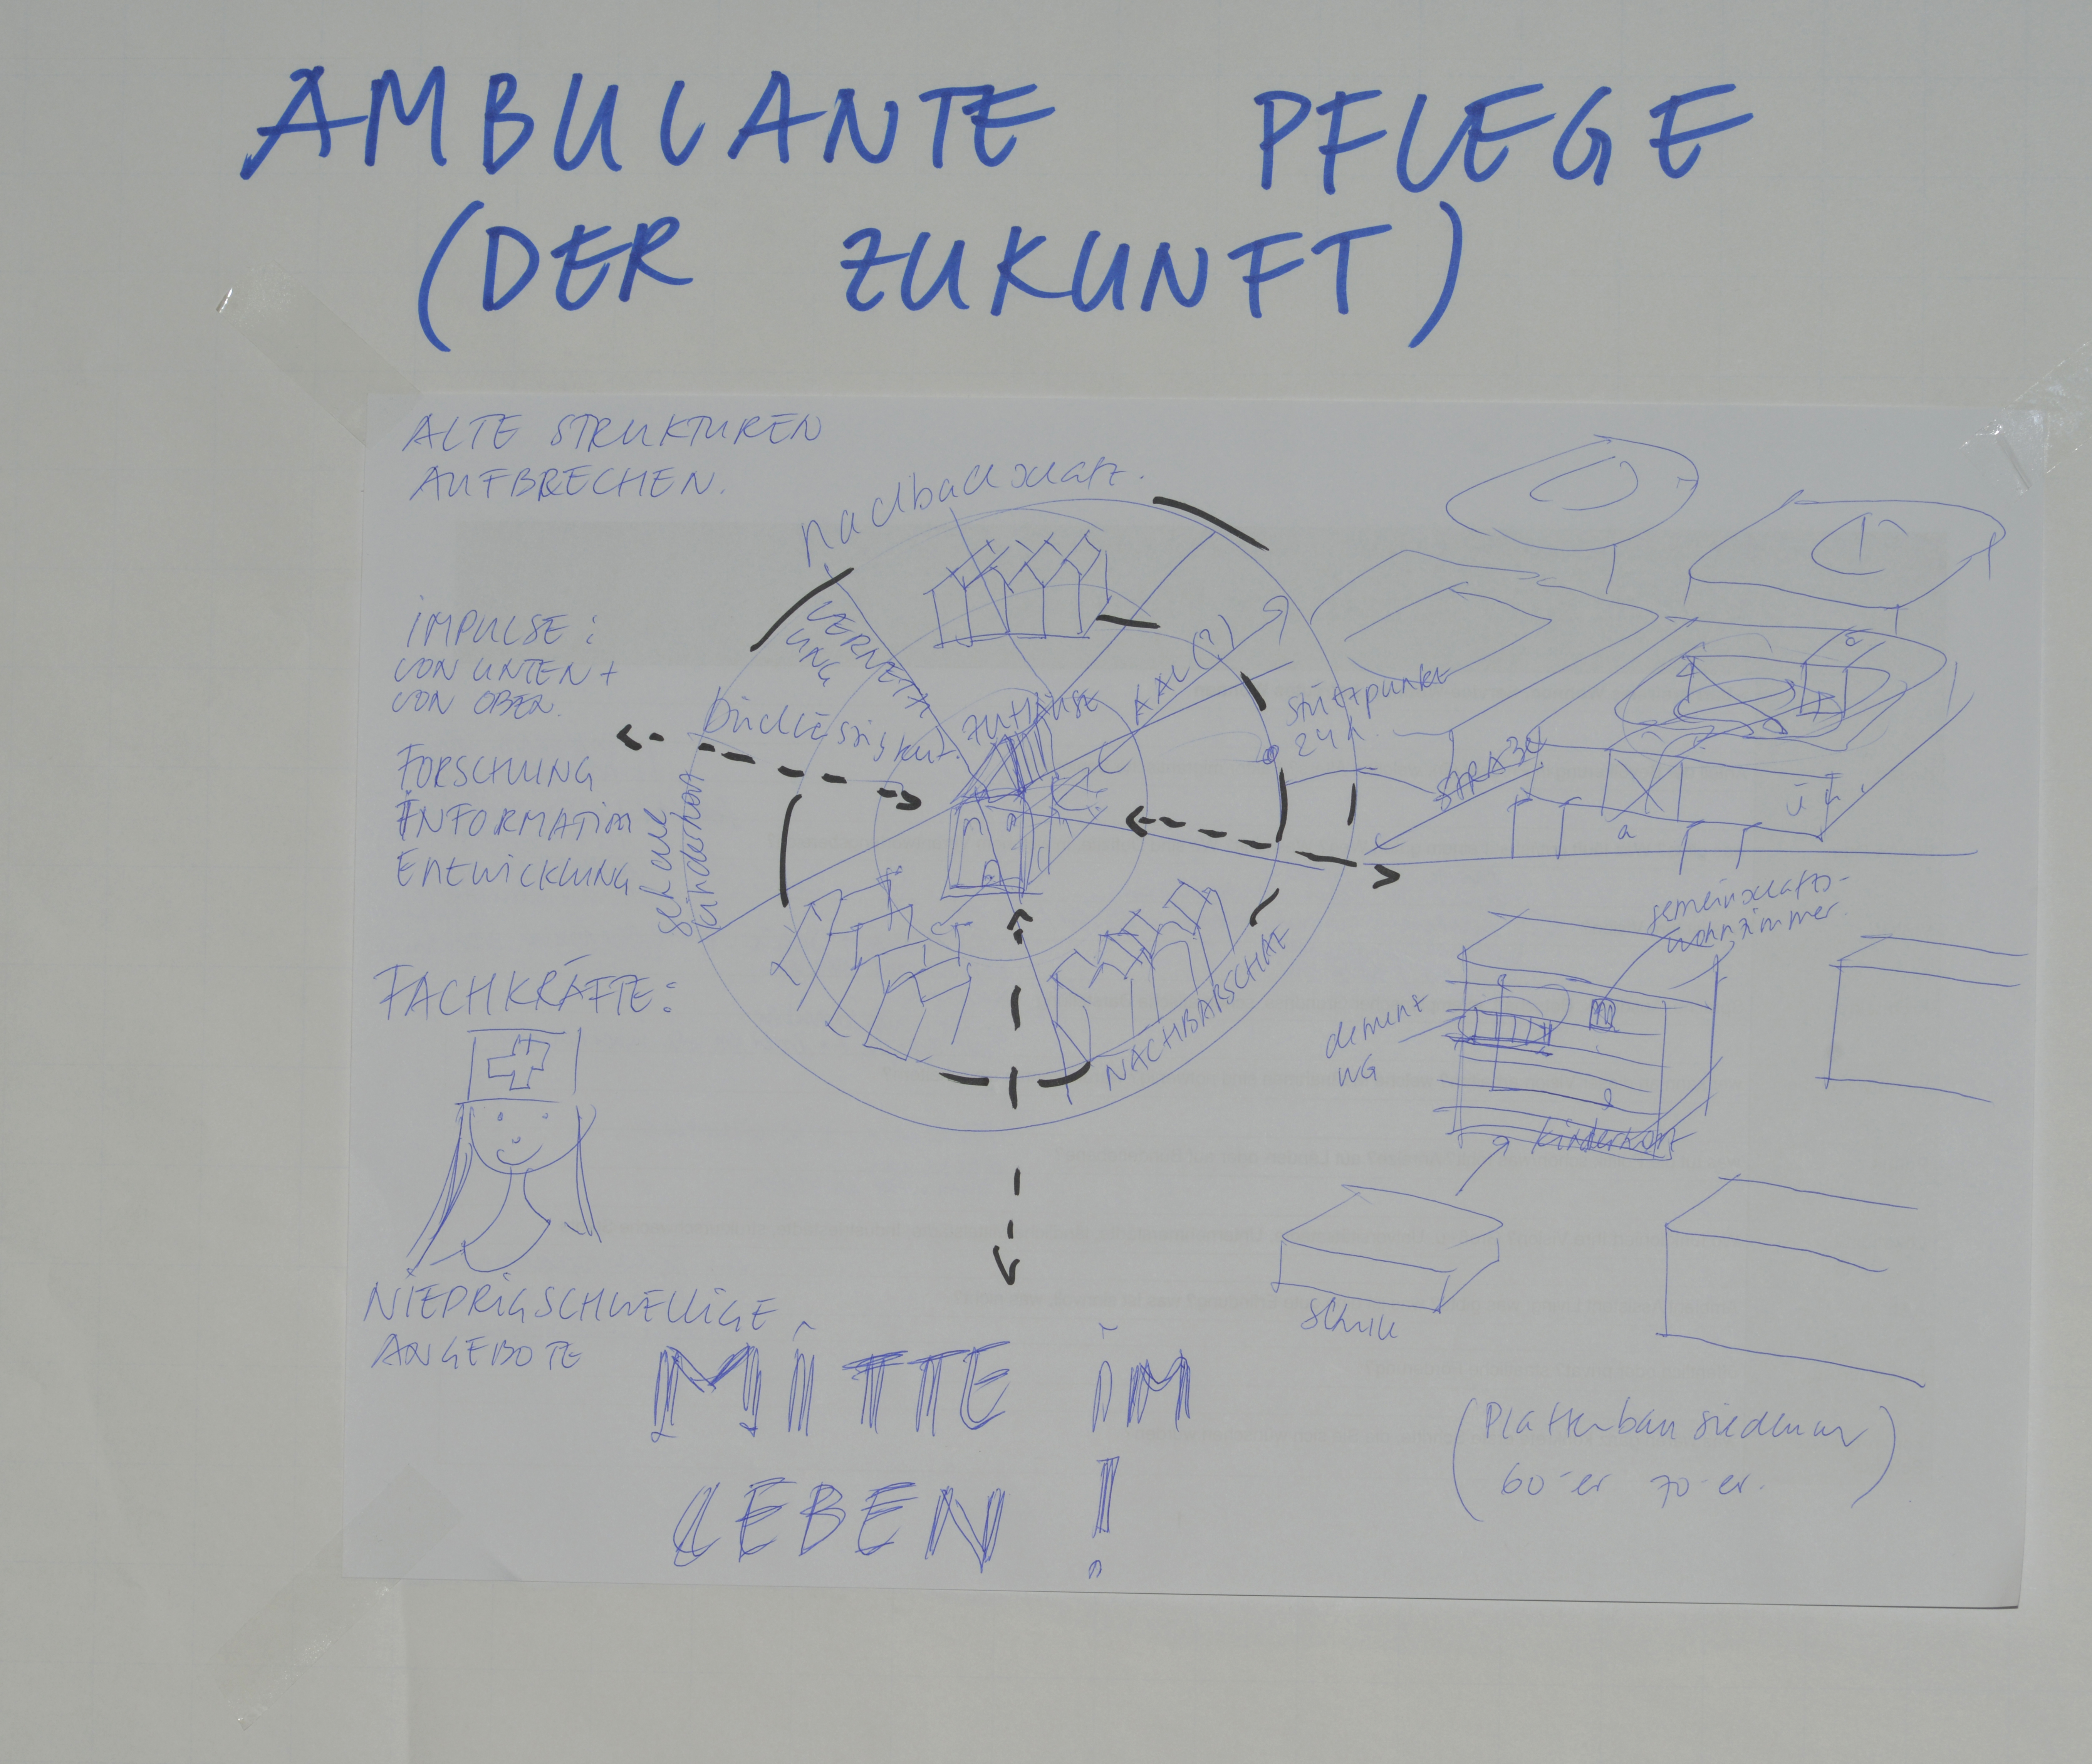 AMBULANTE PFLEGE
(DER ZUKUNFT)
ALTE STRUKTUREN
AUFBRECHEN.
IMPULSE:
VON UNTEN +
VON OBEN.
FORSCHUNG
INFORMATION
ENTWICKLUNG
FACHKRÄFTE:
NIEDRIGSCHWELLIGE
ANGEBOTE
nachbarschaft.
VERNETZ
UNG
ZUHAUSE
KAL (?)
Stützpunkt
24h.
STRAßE
Schule
Kinderhort
NACHBARSCHAF
gemeinschafts-
wohnzimmer.
dement
WG
Kinderhort
Schule
(Plattenbausiedlung
60-er 70-er.)
MITTE IM
LEBEN!